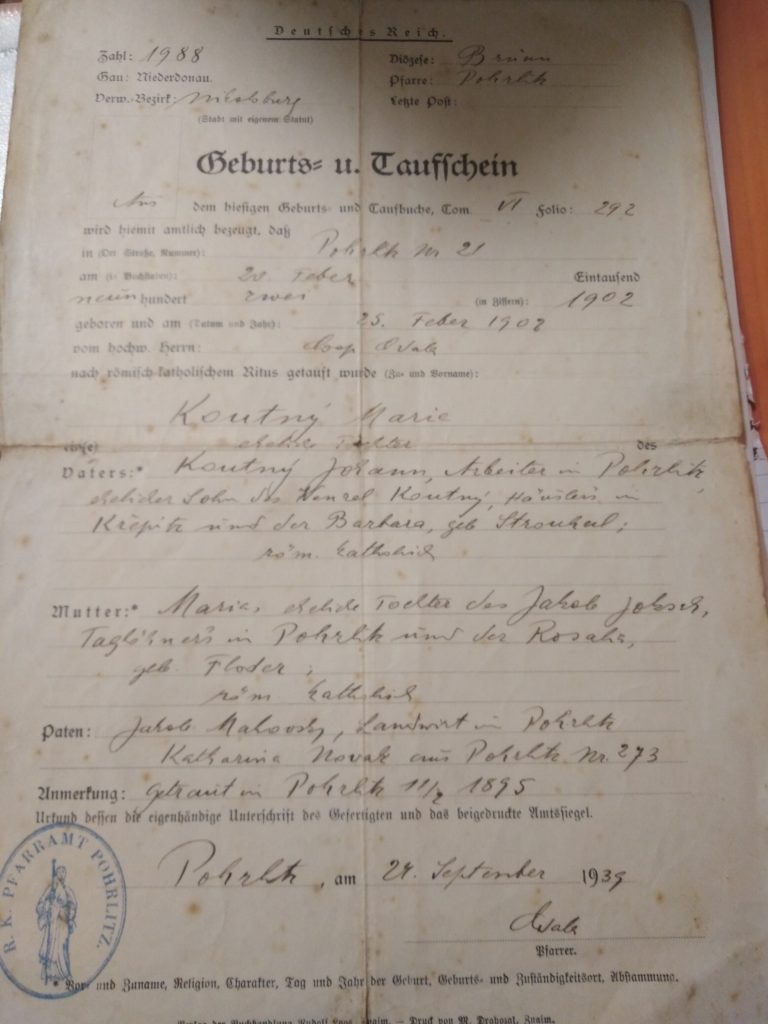 Deutsches Reich.
Zahl: 1988
Diözese: Brünn
Gau: Niederdonau.
Pfarre: Pohrlitz
Verw.-Bezirk: Nikolsburg
Letzte Post:
(Stadt mit eigenem Statut)
Geburts- u. Taufschein
Aus dem hiesigen Geburts- und Taufbuche, Tom. VI Folio: 292
wird hiemit amtlich bezeugt, daß
in (Ort Straße, Nummer): Pohrlitz Nr 21
am (in Buchstaben): Feber Eintausend
neunhundert zwei (in Ziffern): 1902
geboren und am (Datum und Jahr): 25. Feber 1902
vom hochw. Herrn: Coop
nach römisch-katholischem Ritus getauft wurde (Zu- und Vorname):
Koutný Marie
eheliche Tochter des
Vaters:* Koutný Johann, Arbeiter in Pohrlitz,
ehelicher Sohn des Wenzel Koutný, Häuslers in
Křepitz und der Barbara, geb
röm. katholisch
Mutter:* Maria, eheliche Tochter des Jakob
Taglöhners in Pohrlitz und der Rosalia,
geb. Floder;
röm katholisch
Paten: Jakob Landwirt in Pohrlitz
Katharina Novak aus Pohrlitz Nr. 273
Anmerkung: getraut in Pohrlitz 1895
Urkund dessen die eigenhändige Unterschrift des Gefertigten und das beigedruckte Amtssiegel.
R. K. PFARRAMT POHRLITZ.
Pohrlitz, am 27. September 1939
Pfarrer.
* Vor- und Zuname, Religion, Charakter, Tag und Jahr der Geburt, Geburts- und Zuständigkeitsort, Abstammung.
Verlag der Buchhandlung Rudolf Znaim. — Druck von M. Drabozal, Znaim.